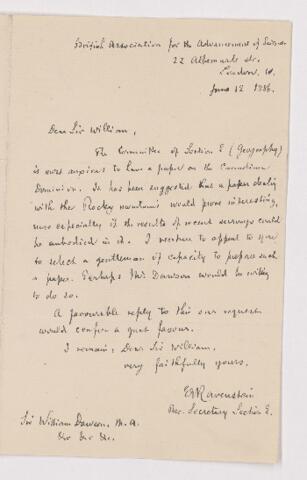 British Association for the Advancement of Science
22 Albemarle St.
London, W.
June 12 1886.
Dear Sir William,
The Committee of Section E (Geography)
is most anxious to have a paper on the Canadian
Dominion. It has been suggested that a paper dealing
with the Rocky mountains would prove interesting,
more especially if the results of recent surveys could
be embodied in it. I venture to appeal to you
to select a gentleman of capacity to prepare such
a paper. Perhaps Mr Dawson would be willing
to do so.
A favourable reply to this our request
would confer a great favour.
I remain, Dear Sir William,
very faithfully yours,
EGRavenstein
Rec. Secretary Section E.
Sir William Dawson, M.A.